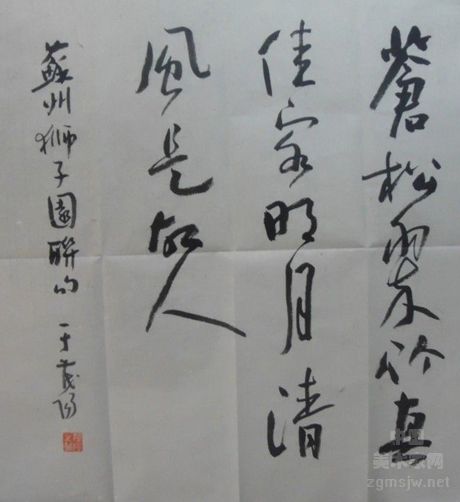 蒼松翠竹真
佳客明月清
風是故人
蘇州獅子園聯句 于茂陽
中国
美术家网
zgmsjw.net